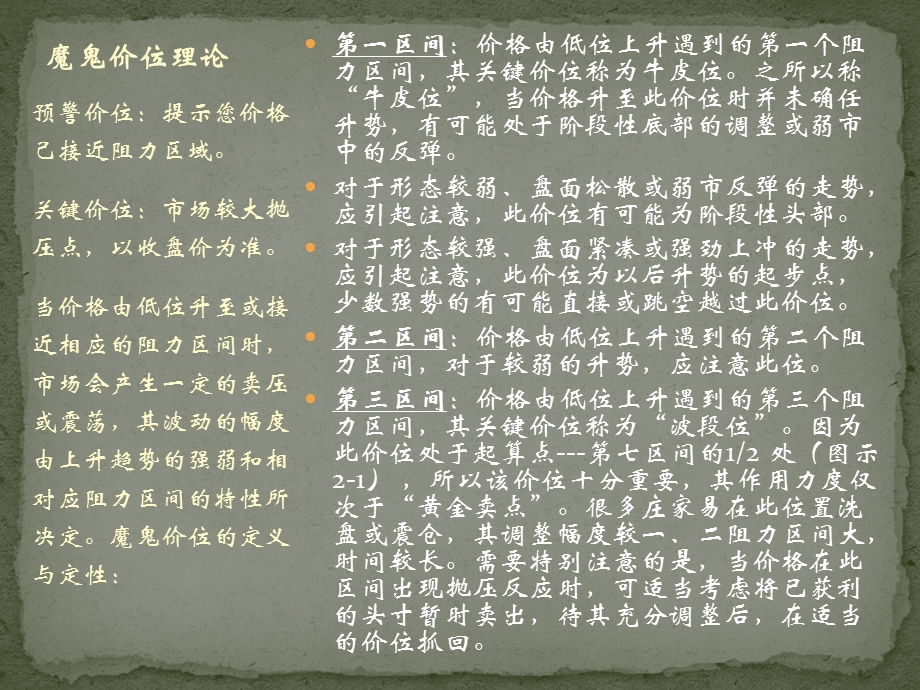 魔鬼价位理论
预警价位：提示您价格
已接近阻力区域。
关键价位：市场较大抛
压点，以收盘价为准。
当价格由低位升至或接
近相应的阻力区间时，
市场会产生一定的卖压
或震荡，其波动的幅度
由上升趋势的强弱和相
对应阻力区间的特性所
决定。魔鬼价位的定义
与定性：
第一区间：价格由低位上升遇到的第一个阻
力区间，其关键价位称为牛皮位。之所以称
“牛皮位”，当价格升至此价位时并未确任
升势，有可能处于阶段性底部的调整或弱市
中的反弹。
对于形态较弱、盘面松散或弱市反弹的走势，
应引起注意，此价位有可能为阶段性头部。
对于形态较强、盘面紧凑或强劲上冲的走势，
应引起注意，此价位为以后升势的起步点，
少数强势的有可能直接或跳空越过此价位。
第二区间：价格由低位上升遇到的第二个阻
力区间，对于较弱的升势，应注意此位。
第三区间：价格由低位上升遇到的第三个阻
力区间，其关键价位称为“波段位”。因为
此价位处于起算点---第七区间的1/2 处（图示
2-1），所以该价位十分重要，其作用力度仅
次于“黄金卖点”。很多庄家易在此位置洗
盘或震仓，其调整幅度较一、二阻力区间大，
时间较长。需要特别注意的是，当价格在此
区间出现抛压反应时，可适当考虑将已获利
的头寸暂时卖出，待其充分调整后，在适当
的价位抓回。